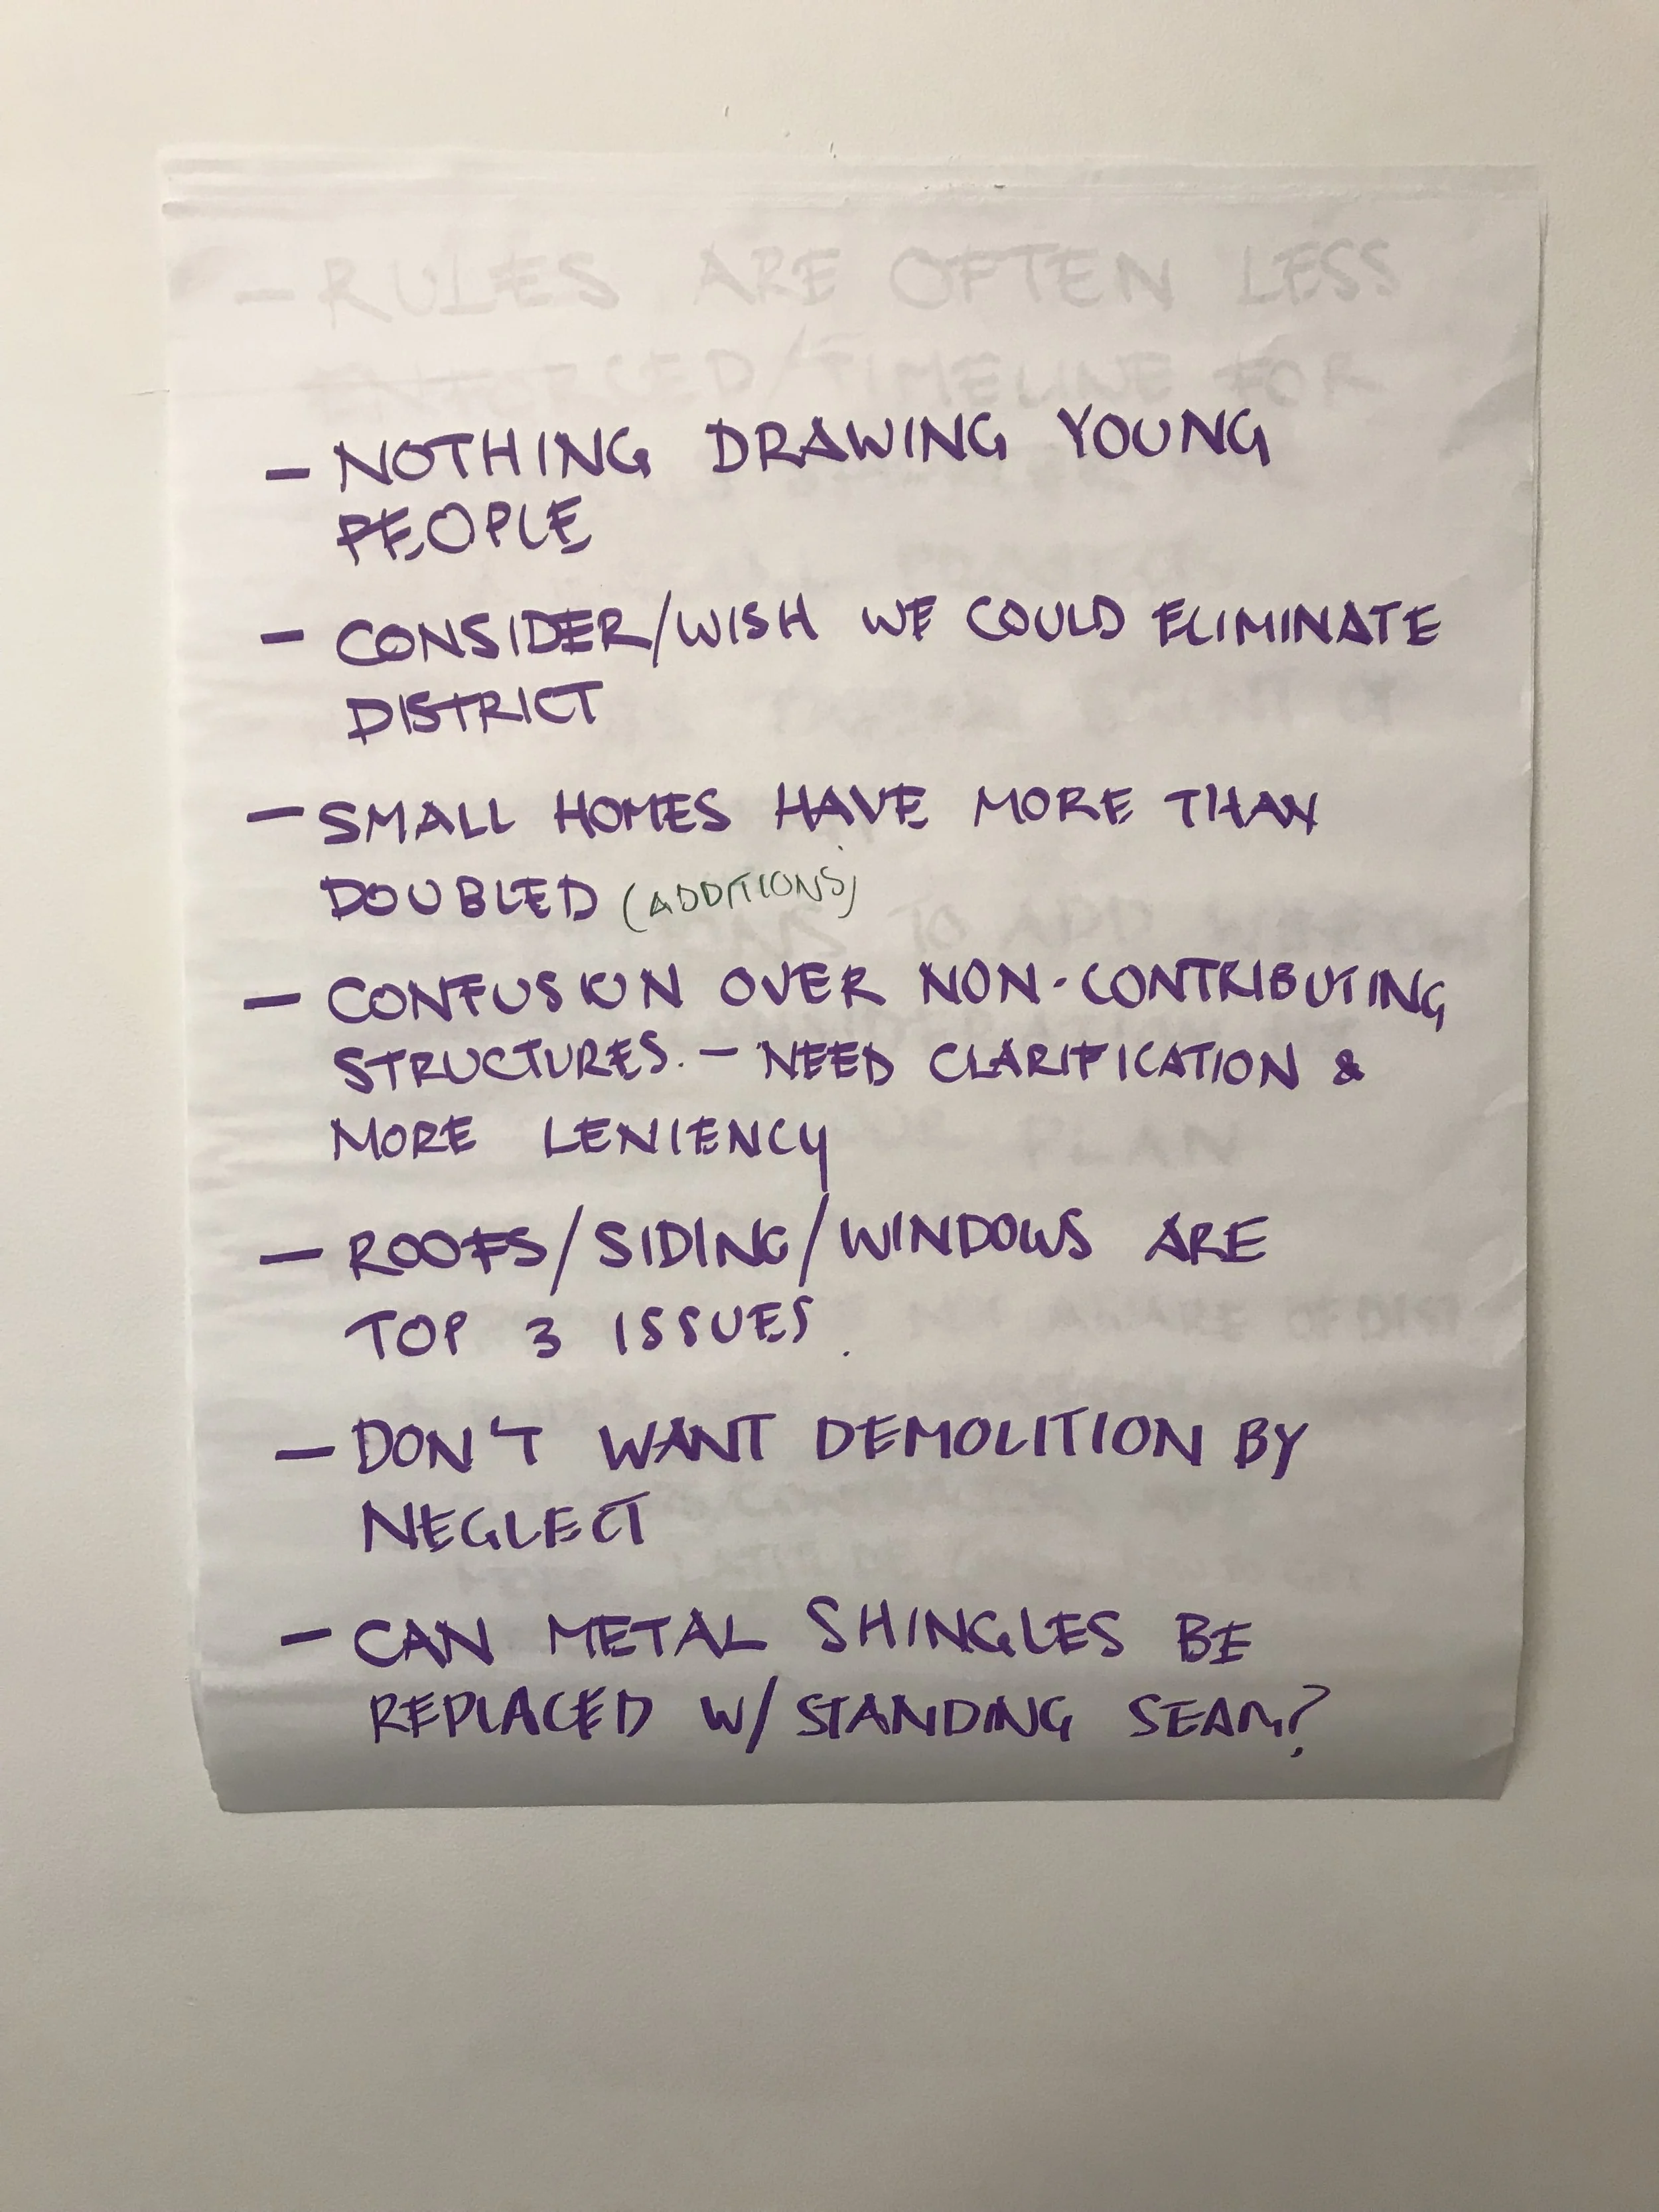 - RULES ARE OFTEN LESS
ENFORCED/TIMELINE FOR
- NOTHING DRAWING YOUNG
PEOPLE
- CONSIDER/WISH WE COULD ELIMINATE
DISTRICT
- SMALL HOMES HAVE MORE THAN
DOUBLED (ADDITIONS)
TO ADD
- CONFUSION OVER NON-CONTRIBUTING
STRUCTURES. - NEED CLARIFICATION &
MORE LENIENCY
PLAN
- ROOFS/SIDING/WINDOWS ARE
TOP 3 ISSUES.
- DON'T WANT DEMOLITION BY
NEGLECT
- CAN METAL SHINGLES BE
REPLACED W/ STANDING SEAM?